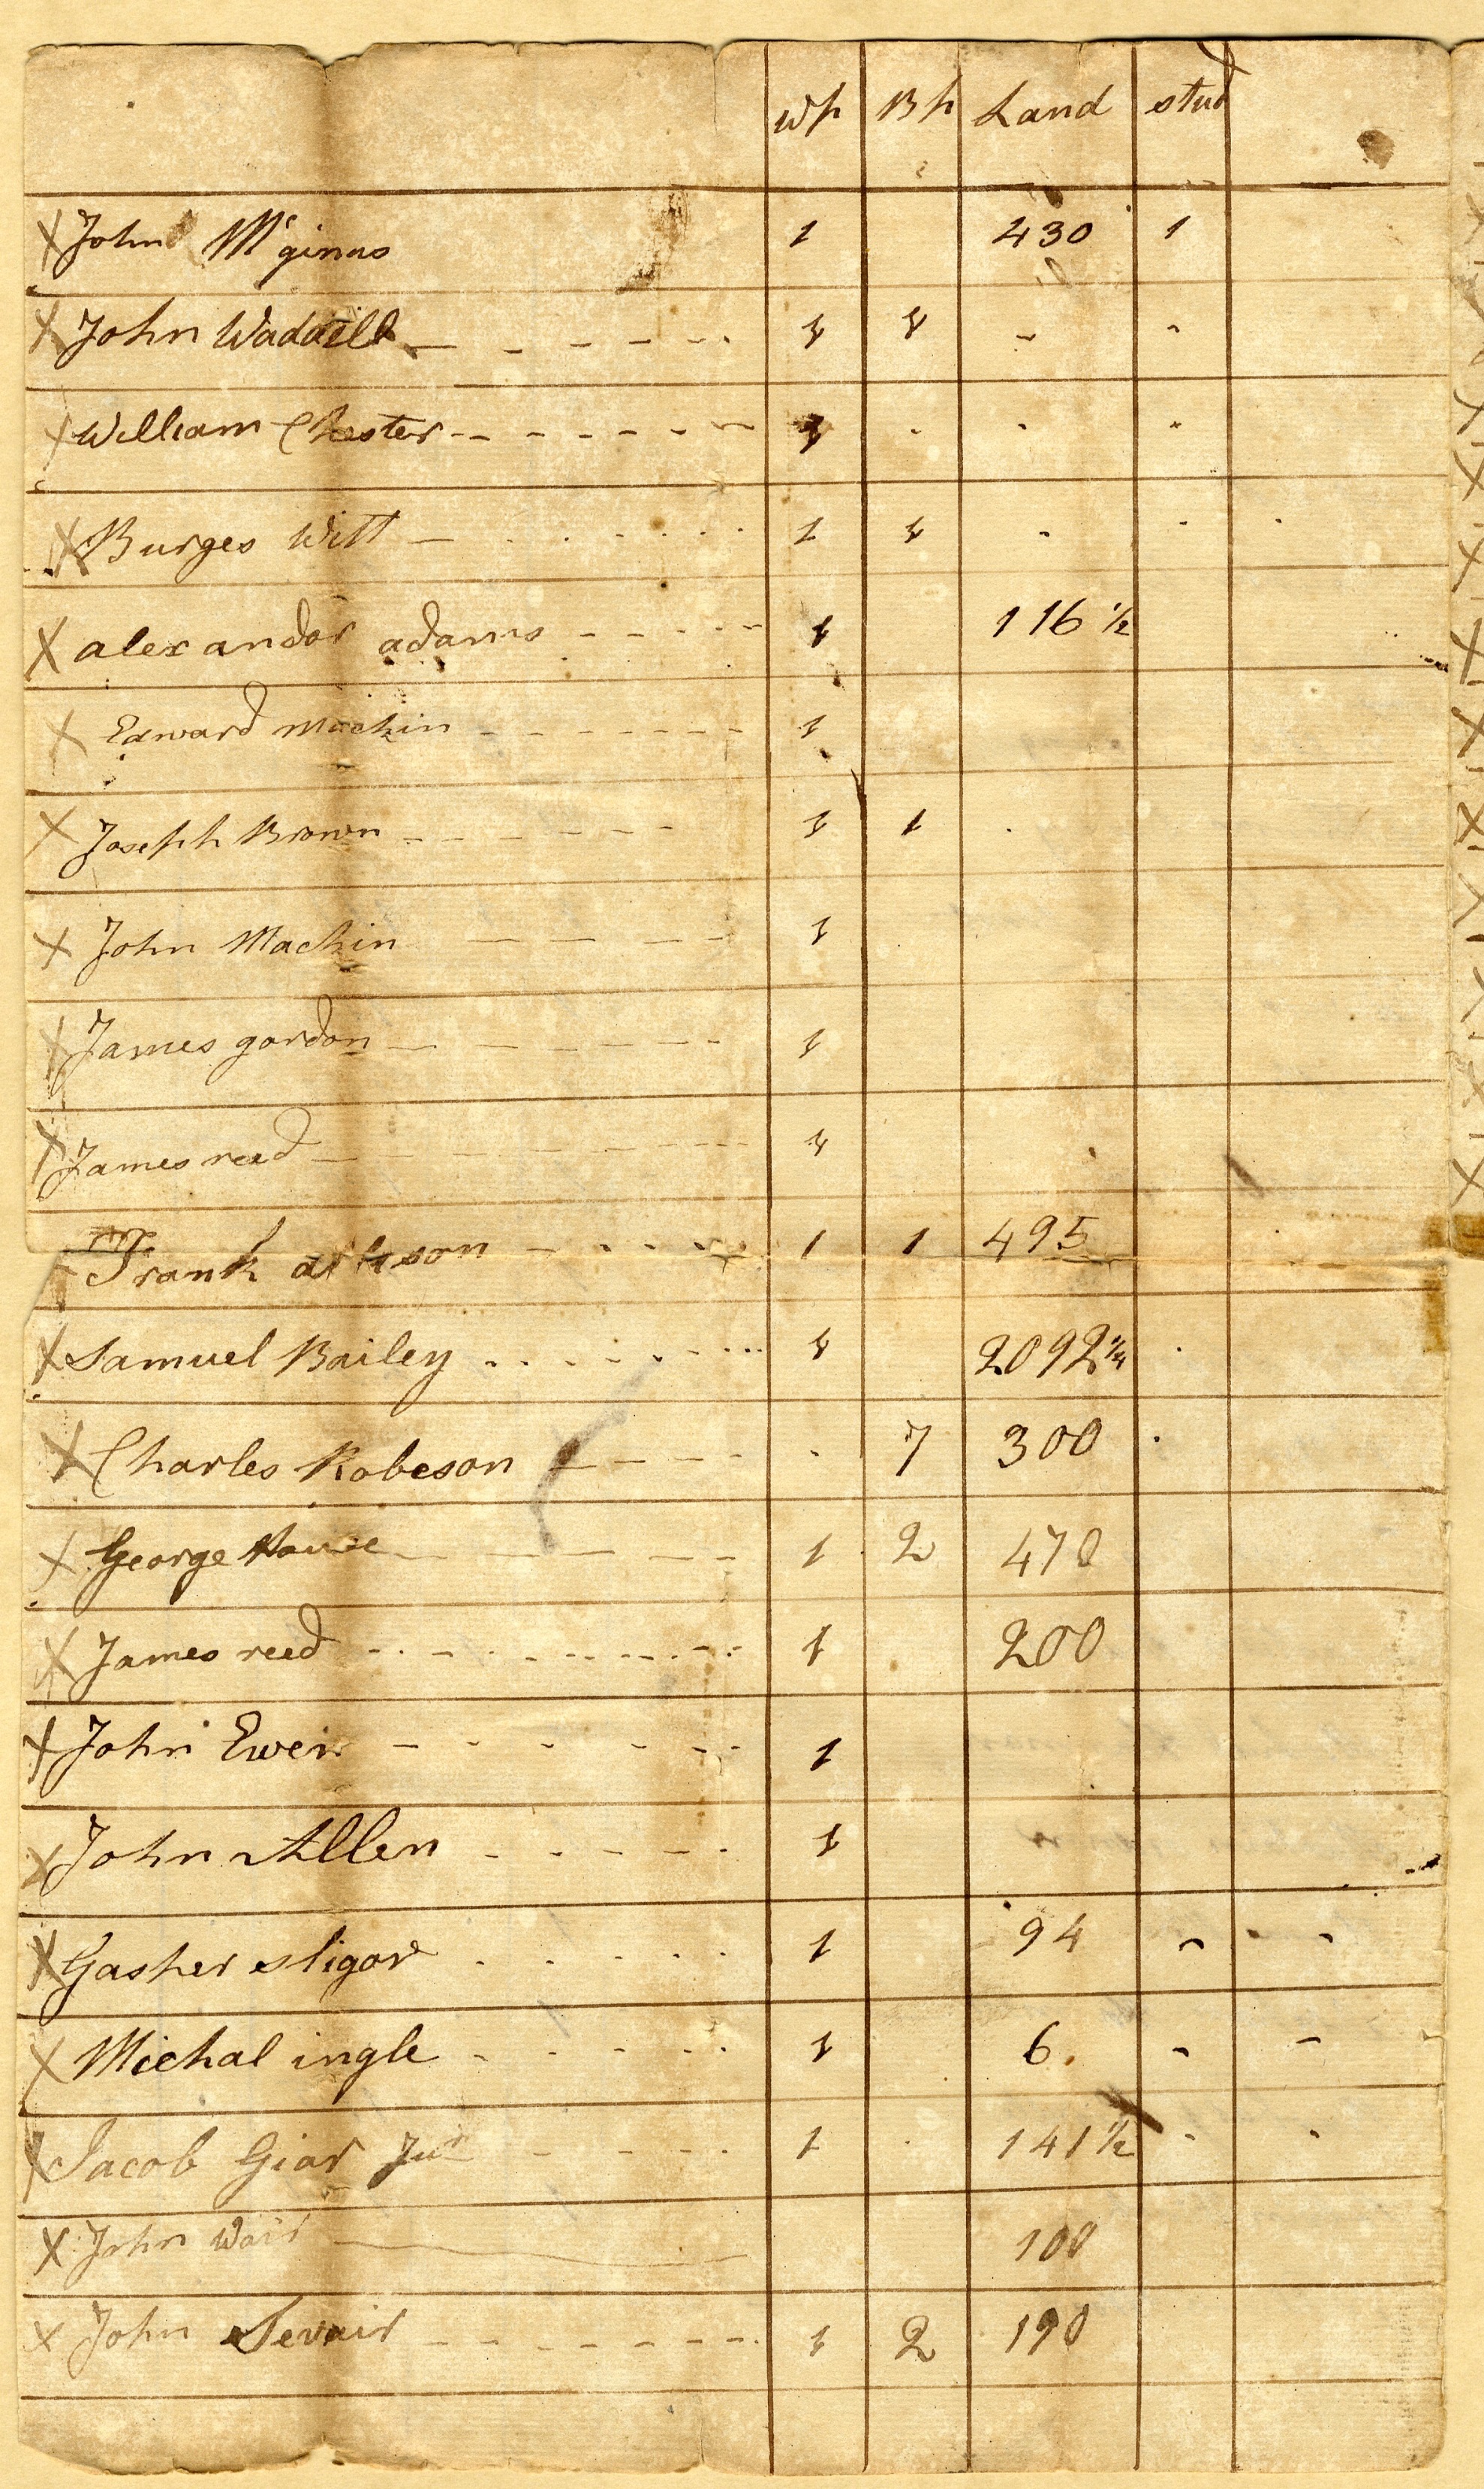 wp Bp Land stud
X John Mcginas 1 430 1
X John Waddell 1 1 - -
X William Chester 1 - - -
X Burges Witt 1 1 - -
X alexandor adams 1 116 1/2
X Edward Machin 1
X Joseph Brown 1 1
X John Machin 1
X James gordon 1
X James reed 1
Frank 1 1 495
X Samuel Bailey 1 2092 1/4
X Charles Robeson - 7 300
X George House 1 2 470
X James reed 1 200
X John Ewein 1
X John Allen 1
X Gasper sligor 1 94 - -
X Michal ingle 1 6 - -
X Jacob Giar Junr 1 - 141 1/2 - -
X John Wair 100
X John Sevair 1 2 190